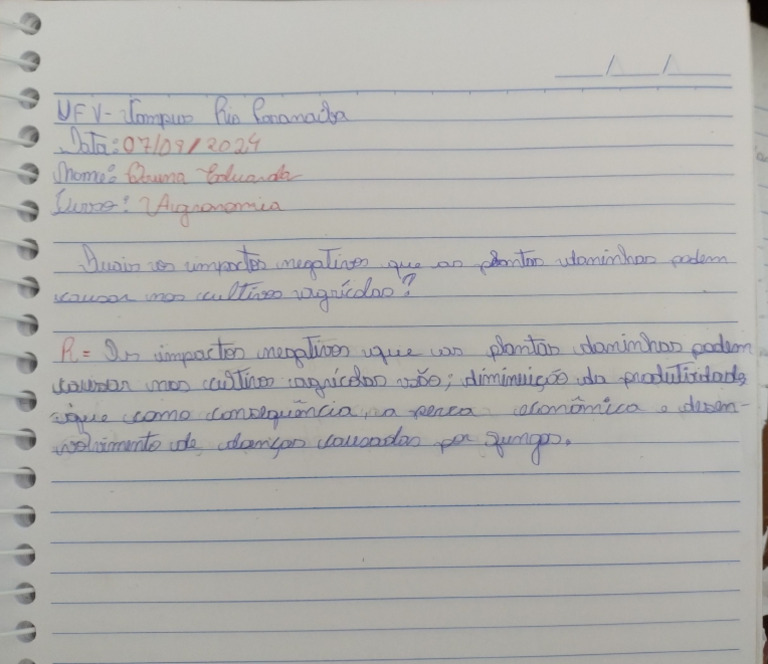 __/__/__
UFV- Campus Rio Paranaíba
Data: 07/09/2024
Nome: Bruna Eduarda
Curso: Agronomia
Quais os impactos negativos que as plantas daninhas podem
causar nos cultivos agrícolas?
R = Os impactos negativos que as plantas daninhas podem
causar nos cultivos agrícolas são; diminuição da produtividade
que como consequência, a perca econômica e desen-
volvimento de doenças causadas por fungos.